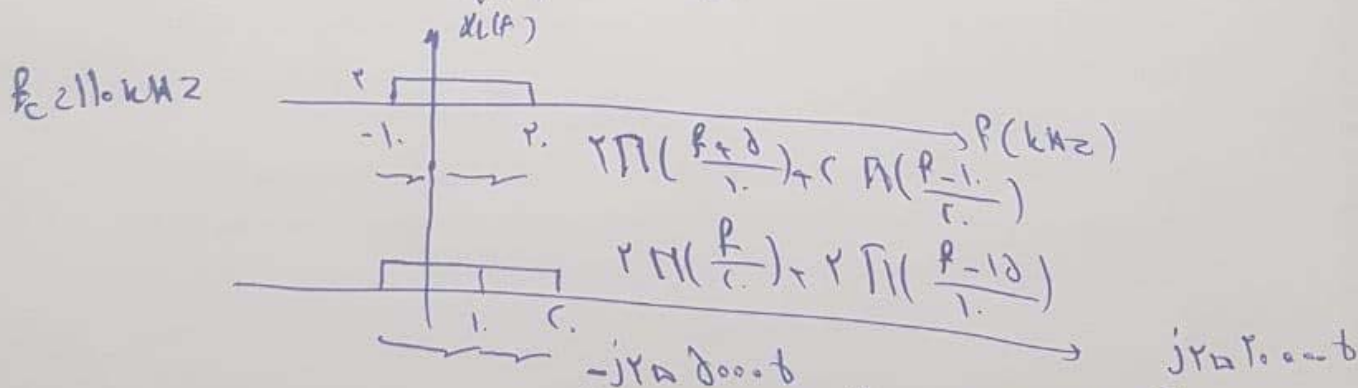 x_L(f)
f_c = 110 kHz
۲
-۱۰ ۲۰ f(kHz)
۲Π((f+۵)/۱۰) + ۲Π((f-۱۰)/۲۰)
۲Π(f/۲۰) + ۲Π((f-۱۵)/۱۰)
۱۰ ۲۰
-j۲π ۵۰۰۰t j۲π ۲۰۰۰۰t